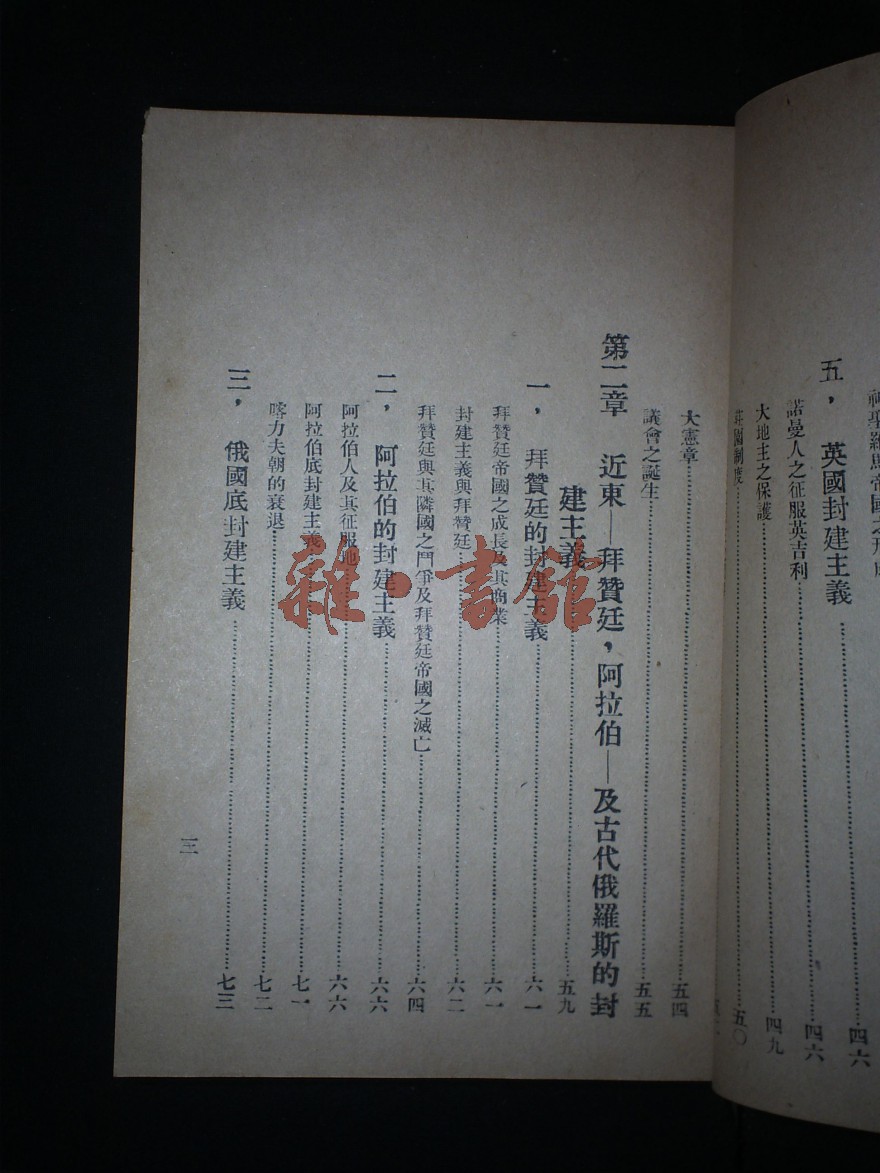 神聖羅馬帝國之形成
五，英國封建主義……四六
諾曼人之征服英吉利……四六
大地主之保護……四九
莊園制度……五〇
大憲章……五四
議會之誕生……五五
第二章　近東—拜贊廷，阿拉伯—及古代俄羅斯的封
建主義……五九
一，拜贊廷的封建主義……六一
拜贊廷帝國之成長及其商業……六一
封建主義與拜贊廷……六二
拜贊廷與其隣國之鬥爭及拜贊廷帝國之滅亡……六四
二，阿拉伯的封建主義……六六
阿拉伯人及其征服地……六六
阿拉伯底封建主義……七一
喀力夫朝的衰退……七二
三，俄國底封建主義……七三
三
雜·書館